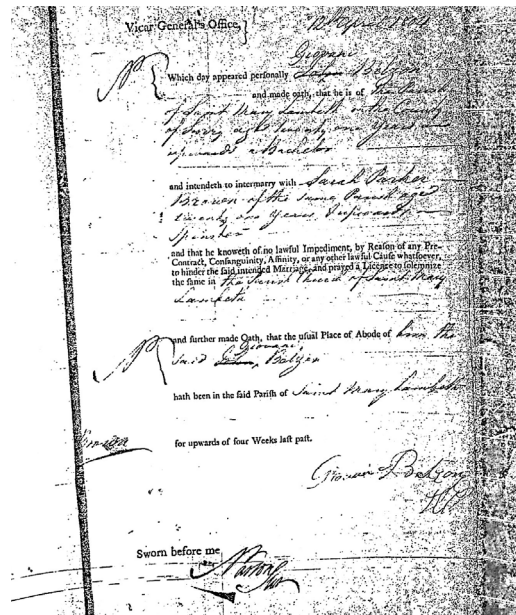 Vicar General's Office,} 12th April 1804
Giovani
Which day appeared personally John Belzon
and made oath, that he is of the Parish
of Saint Mary Lambeth in the County
of Surry aged twenty one Years
upwards a Bachelor
and intendeth to intermarry with Sarah Parker
Brown of the same Parish aged
twenty one Years & upwards
Spinster
and that he knoweth of no lawful Impediment, by Reason of any Pre-
Contract, Consanguinity, Affinity, or any other lawful Cause whatsoever,
to hinder the said intended Marriage, and prayed a Licence to solemnize
the same in the Parish Church of Saint Mary
Lambeth
and further made Oath, that the usual Place of Abode of him the
Giovani
said John Belzon
hath been in the said Parish of Saint Mary Lambeth
for upwards of four Weeks last past.
Giovani Belzon
Sworn before me,